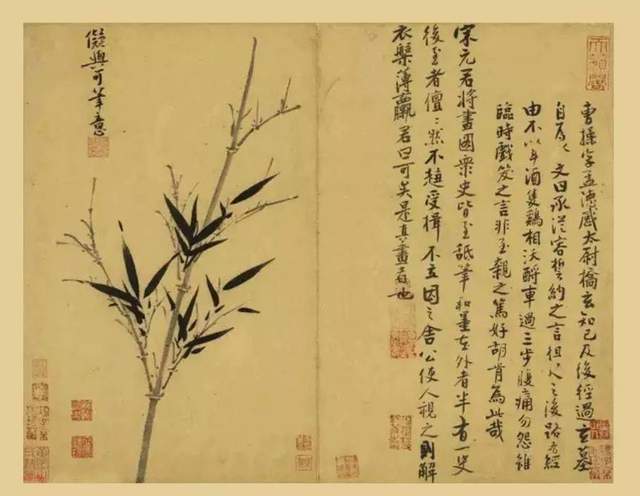 曹操字孟德感太尉橋玄知己及後經過玄墓
自為文曰承從容誓約之言徂之後路有經
由不以斗酒隻鷄相沃酹車過三步腹痛勿怨雖
臨時戲笑之言非至親之篤好胡肯為此哉
宋元君將畫圖衆史皆至舐筆和墨在外者半有一史
後至者儃〻然不趨受揖不立因之舍公使人視之則解
衣槃薄臝君曰可矣是真畫者也
儗與可筆意